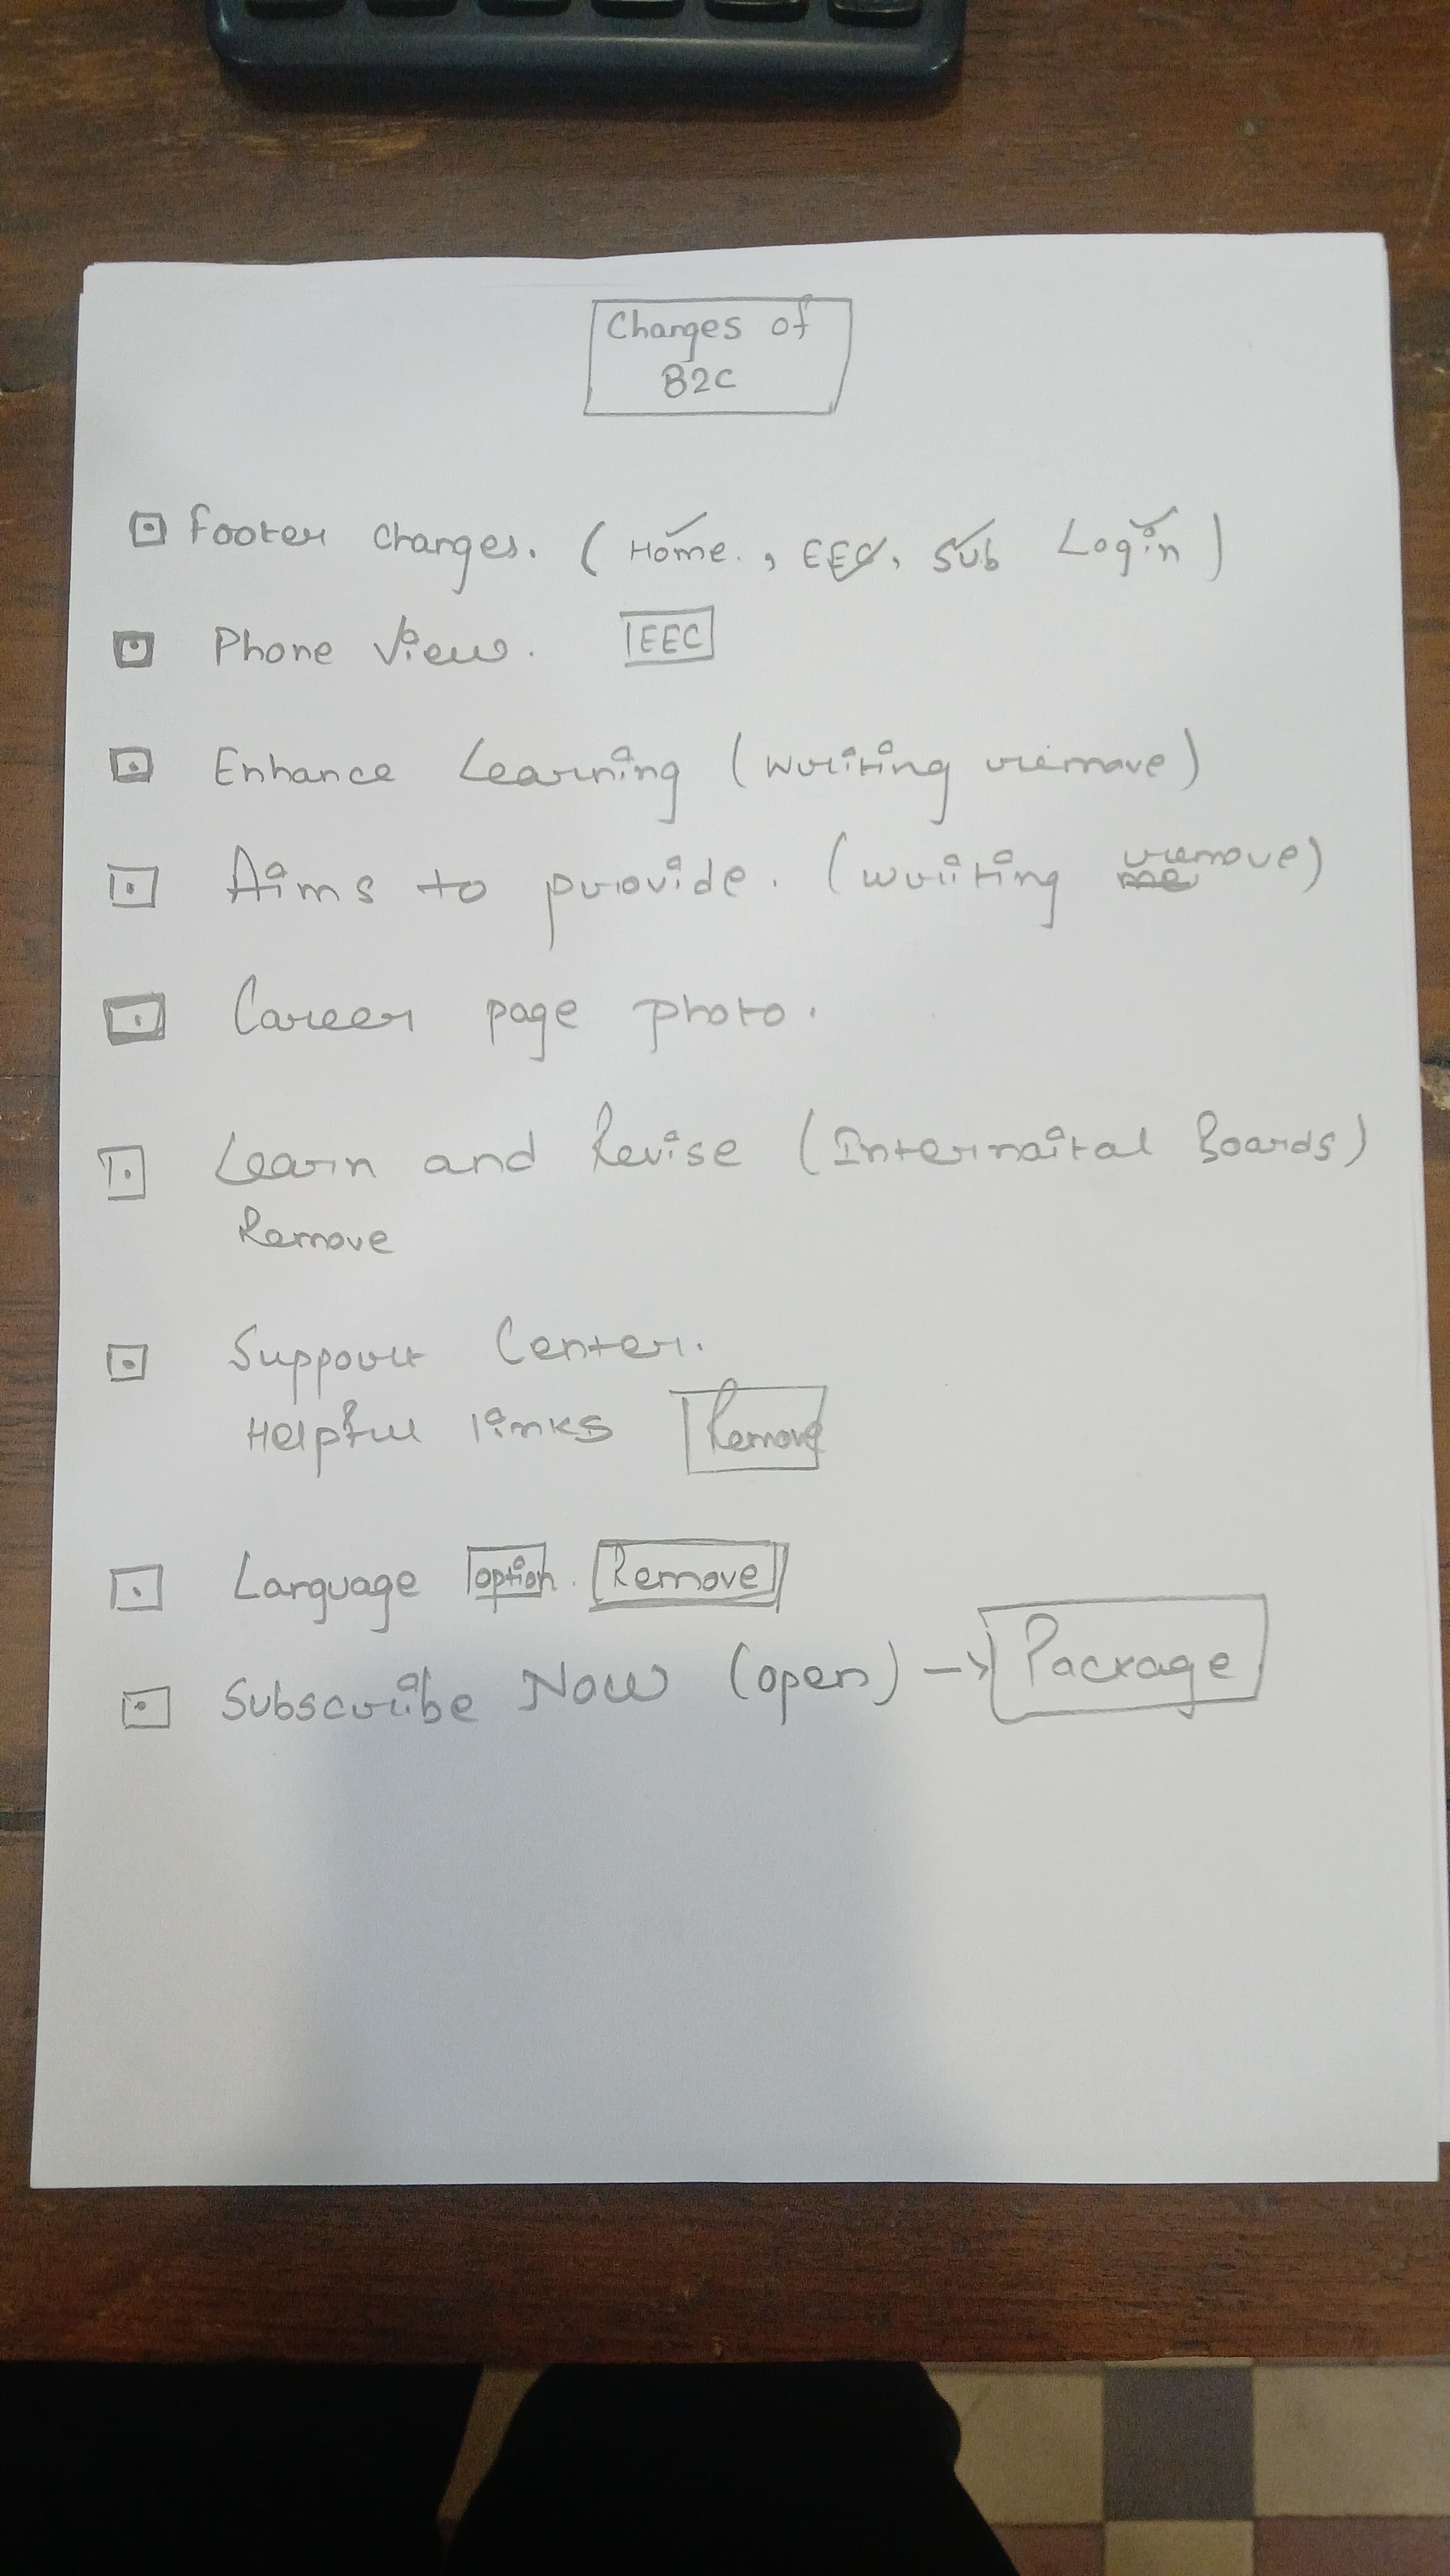 Changes of
B2C
Footer changes. (Home. , EEC, Sub Login)
Phone View. EEC
Enhance Learning (writing remove)
Aims to provide. (writing remove)
Career page photo.
Learn and Revise (Internaital Boards)
Remove
Support Center.
Helpful links Remove
Language option. Remove
Subscribe Now (open) → Package